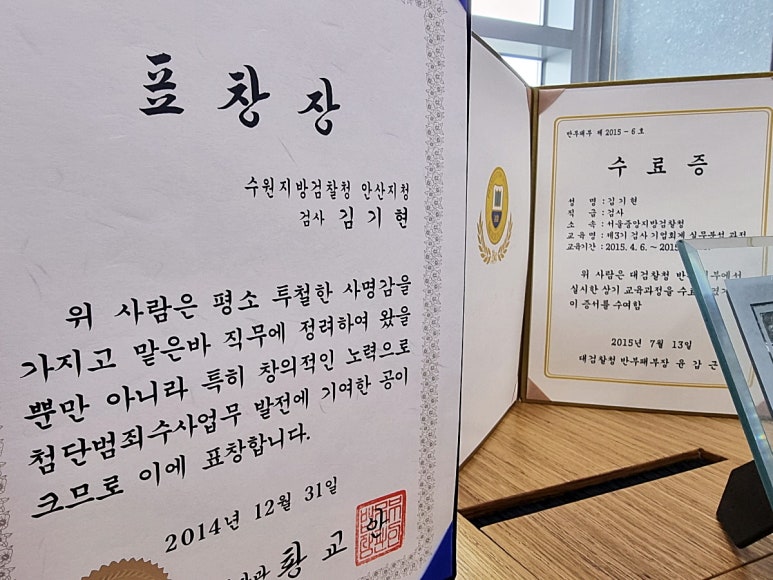 표창장
수원지방검찰청 안산지청
검사 김기현
위 사람은 평소 투철한 사명감을
가지고 맡은바 직무에 정려하여 왔을
뿐만 아니라 특히 창의적인 노력으로
첨단범죄수사업무 발전에 기여한 공이
크므로 이에 표창합니다.
2014년 12월 31일
황교안
반부패부 제 2015 - 6 호
수료증
성 명 : 김기현
직 급 : 검사
소 속 : 서울중앙지방검찰청
교 육 명 : 제3기 검사 기업회계 실무분석 과정
교육기간 : 2015. 4. 6. ~ 2015
위 사람은 대검찰청 반 부에서
실시한 상기 교육과정을 수료
이 증서를 수여함
2015년 7월 13일
대검찰청 반부패부장 윤갑근